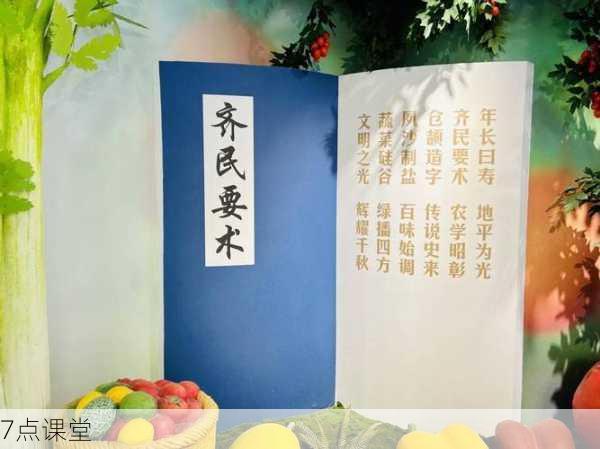 齐民要术
年长曰寿 地平为光
齐民要术 农学昭彰
仓颉造字 传说史来
夙沙制盐 百味始调
蔬菜硅谷 绿播四方
文明之光 辉耀千秋
7点课堂